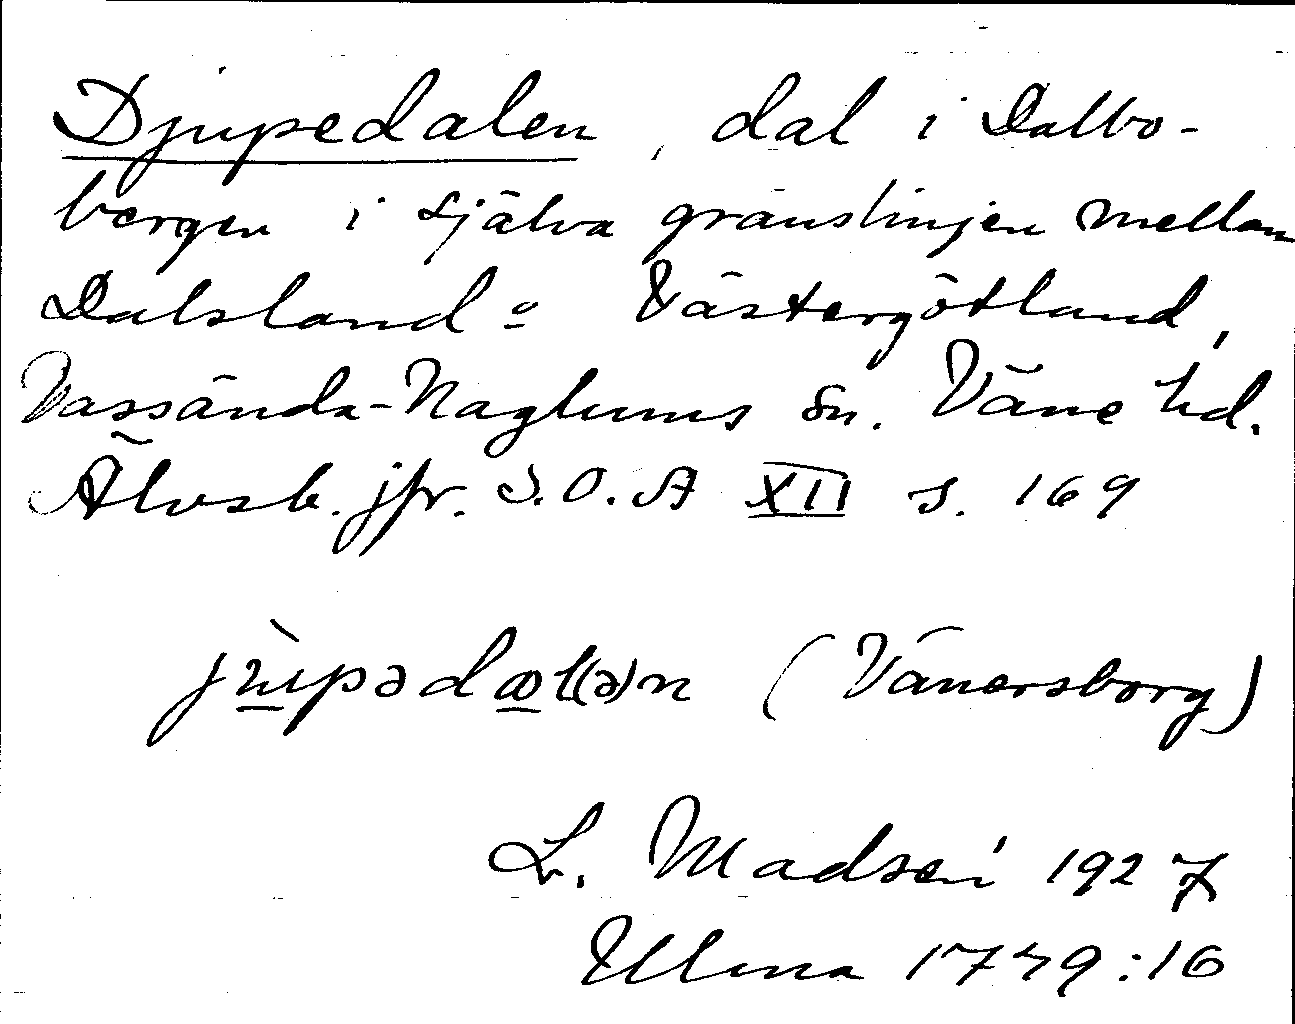 Djupedalen, dal i Dalbo-
bergen i själva gränslinjen mellan
Dalsland o Västergötland,
Vassända-Naglums sn. Väne hd.
Älvsb. jfr. S.O.A XII s. 169
jùpədæl(ə)n (Vänersborg)
L. Madsén 1927
Ulma 1749:16